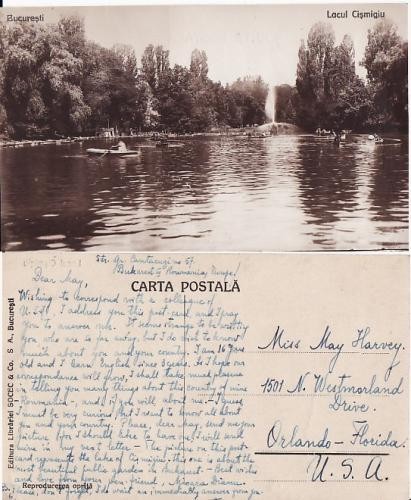 București
Lacul Cișmigiu
Str. Gr. Cantacuzino 57.
Bukarest, Roumania, Europe!
CARTA POSTALĂ
Dear May,
Wishing to correspond with a colleague of
U.S.A. I address you this post card and I pray
you to answer me. It seems strange to be writing
you who are so far away, but I do wish to know
much about you and your country. I am 16 years
old and I learn English since 3 years. As I hope our
correspondence will grow, I shall take much pleasure
in telling you many things about this country of mine
- Roumania -, and if you will about me. - I guess
I must be very curious but I want to know all about
you and your country. Please, dear May, send me your
picture (for I should like to have one) I will send
mine in my next letter. - The picture on this post
card represents the lake of Cișmigiu: this one is about the
most beautiful public garden in Bukarest - Best wishes
and love from your pen friend,
Please, don't forget, I do wait an immediately answer from you
Miss May Harvey.
1501 N. Westmorland
Drive.
Orlando - Florida.
U. S. A.
Editura Librăriei SOCEC & Co. S. A., București
Reproducerea oprită